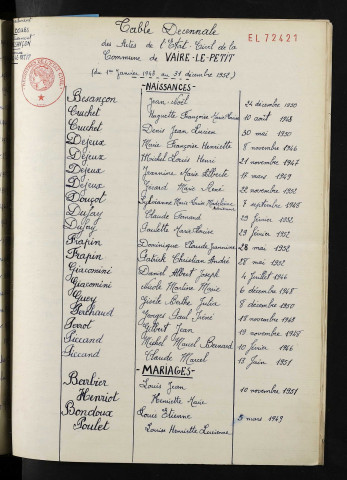 EL 72421
Table Décennale
des Actes de l'Etat-Civil de la
Commune de VAIRE-LE-PETIT
(du 1er Janvier 1943 au 31 décembre 1952)
NAISSANCES
Besançon Jean 24 décembre 1950
Cuchet Huguette Françoise 10 août 1948
Cuchet Denis Jean Lucien 30 mai 1950
Dejeux Marie Françoise Henriette 8 novembre 1946
Dejeux Michel Louis Henri 21 novembre 1947
Dejeux Jeannine Marie Alberte 18 mars 1949
Dejeux Gérard Marie René 22 novembre 1952
Douçot Sylvianne Marie Louise Madeleine 7 septembre 1948
Dufay Claude Fernand 29 février 1952
Dufay Paulette Marie 29 février 1952
Frapin Dominique Claude Jeannine 28 mai 1952
Frapin Patrick Christian André 28 mai 1952
Giacomini Daniel Albert Joseph 4 Juillet 1946
Giacomini Nicole Martine Marie 6 décembre 1948
Guey Gisèle Berthe Julia 8 décembre 1950
Georges Paul Iréné 18 novembre 1948
Perrot Gilbert Jean 19 novembre 1948
Piccand Michel Marcel Bernard 10 février 1946
Piccand Claude Marcel 13 Juin 1951
MARIAGES
Barbier Louis Jean 10 novembre 1951
Henriot Henriette Marie
Bondoux Louis Etienne 5 mars 1949
Poulet Louise Henriette Lucienne